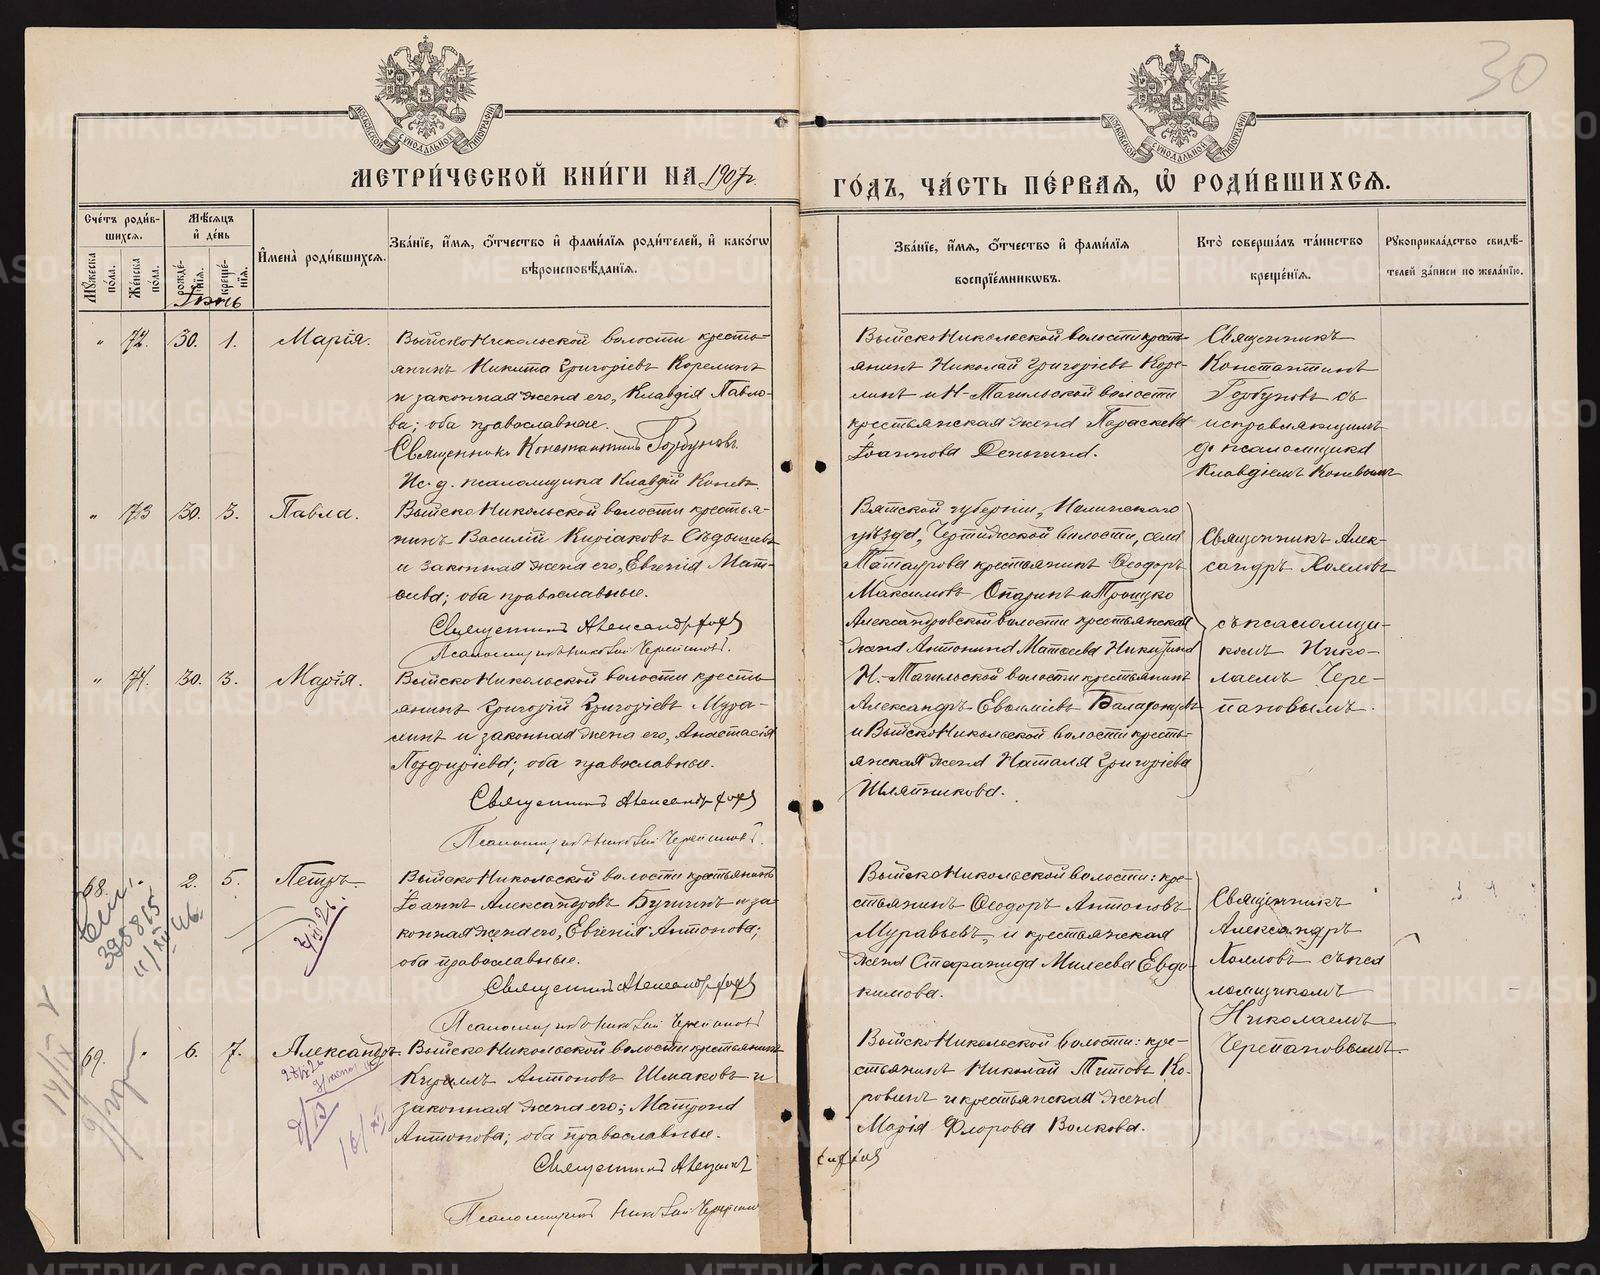 30
МЕТРИ́ЧЕСКОЙ КНИ́ГИ НА 1907 г.
ГО́ДЪ, ЧА́СТЬ ПЕ́РВАЯ, Ѡ҆ РОДИ́ВШИХСЯ.
Сче́тъ роди́в-
шихся.
Мꙋ́жеска по́ла.
Же́нска по́ла.
Мѣ́сяцъ
и҆ де́нь
рожде́-
нїя.
креще́-
нїя.
Іюнь
И҆мена̀ роди́вшихся.
Зва́нїе, и҆́мя, ѻ҆́тчество и҆ фами́лїя роди́телей, и҆ како́гѡ
вѣроисповѣ́данїя.
Зва́нїе, и҆́мя, ѻ҆́тчество и҆ фами́лїя
воспрїе́мникѡвъ.
Кто̀ соверша́лъ та́инство
креще́нїя.
Рꙋкоприкла́дство свидѣ́-
телей за́писи по жела́нїю.
" 72. 30. 1. Марія.
Выйско Никольской волости кресть-
янинъ Никита Григоріевъ Корелинъ
и законная жена его, Клавдія Павло-
ва; оба православные.
Священникъ Константинъ Горбуновъ.
Ис. д. псаломщика Клавдій
Выйско Никольской волости кресть-
янинъ Николай Григоріевъ Коре-
линъ и Н-Тагильской волости
крестьянская жена Параскева
Іоаннова
Священникъ
Константинъ
Горбуновъ съ
исправляющимъ
д. псаломщика
Клавдіемъ
" 73 30. 3. Павла.
Выйско Никольской волости крестья-
нинъ Василій Киріаковъ Сѣдышевъ
и законная жена его, Евгенія Мат-
ѳеева; оба православные.
Священникъ Александръ Хохловъ
Псаломщикъ Николай Черепановъ.
Вятской губерніи,
уѣзда, волости, села
крестьянинъ Ѳеодоръ
Максимовъ Опаринъ и Троицко
Александровской волости крестьянская
жена Антонина Матѳеева Никитина
Священникъ Алек-
сандръ Хохловъ
съ псаломщи-
комъ Нико-
лаемъ Чере-
пановымъ.
" 74. 30. 3. Марія.
Выйско Никольской волости кресть-
янинъ Григорій Григоріевъ Мура-
шинъ и законная жена его, Анастасія
Порфиріева; оба православные.
Священникъ Александръ Хохловъ
Псаломщикъ Николай Черепановъ.
Н.-Тагильской волости крестьянинъ
Александръ Евѳиміевъ
и Выйско Никольской волости кресть-
янская жена Наталія Григоріева
Шляпникова.
68. " 2. 5. Петръ.
398865
11/XII 46.
Выйско Никольской волости крестьянинъ
Іоаннъ Александровъ Бушинъ и за-
конная жена его, Евгенія Антонова;
оба православные.
Священникъ Александръ Хохловъ
Псаломщикъ Николай Черепановъ
Выйско Никольской волости: кре-
стьянинъ Ѳеодоръ Антоновъ
Муравьевъ, и крестьянская
жена Стефанида Милеева Евдо-
кимова.
Священникъ
Александръ
Хохловъ съ пса
ломщикомъ
Николаемъ
Черепановымъ.
69. " 6. 7. Александръ.
Выйско Никольской волости крестьянинъ
Кириллъ Антоновъ Шмаковъ и
законная жена его; Матрона
Антонова; оба православные.
Священникъ Александръ
Хохловъ
Псаломщикъ Николай Черепановъ
Выйско Никольской волости: кре-
стьянинъ Николай Титовъ Ко-
ровинъ и крестьянская жена
Марія Флорова Волкова.